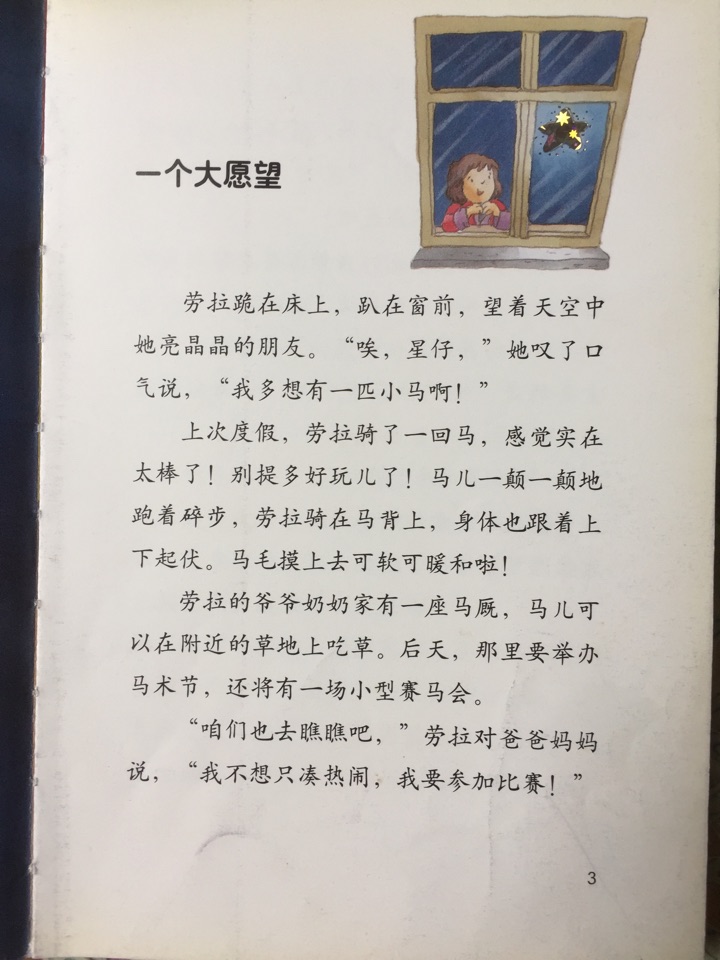 一个大愿望
劳拉跪在床上，趴在窗前，望着天空中
她亮晶晶的朋友。“唉，星仔，”她叹了口
气说，“我多想有一匹小马啊！”
上次度假，劳拉骑了一回马，感觉实在
太棒了！别提多好玩儿了！马儿一颠一颠地
跑着碎步，劳拉骑在马背上，身体也跟着上
下起伏。马毛摸上去可软可暖和啦！
劳拉的爷爷奶奶家有一座马厩，马儿可
以在附近的草地上吃草。后天，那里要举办
马术节，还将有一场小型赛马会。
“咱们也去瞧瞧吧，”劳拉对爸爸妈妈
说，“我不想只凑热闹，我要参加比赛！”
3